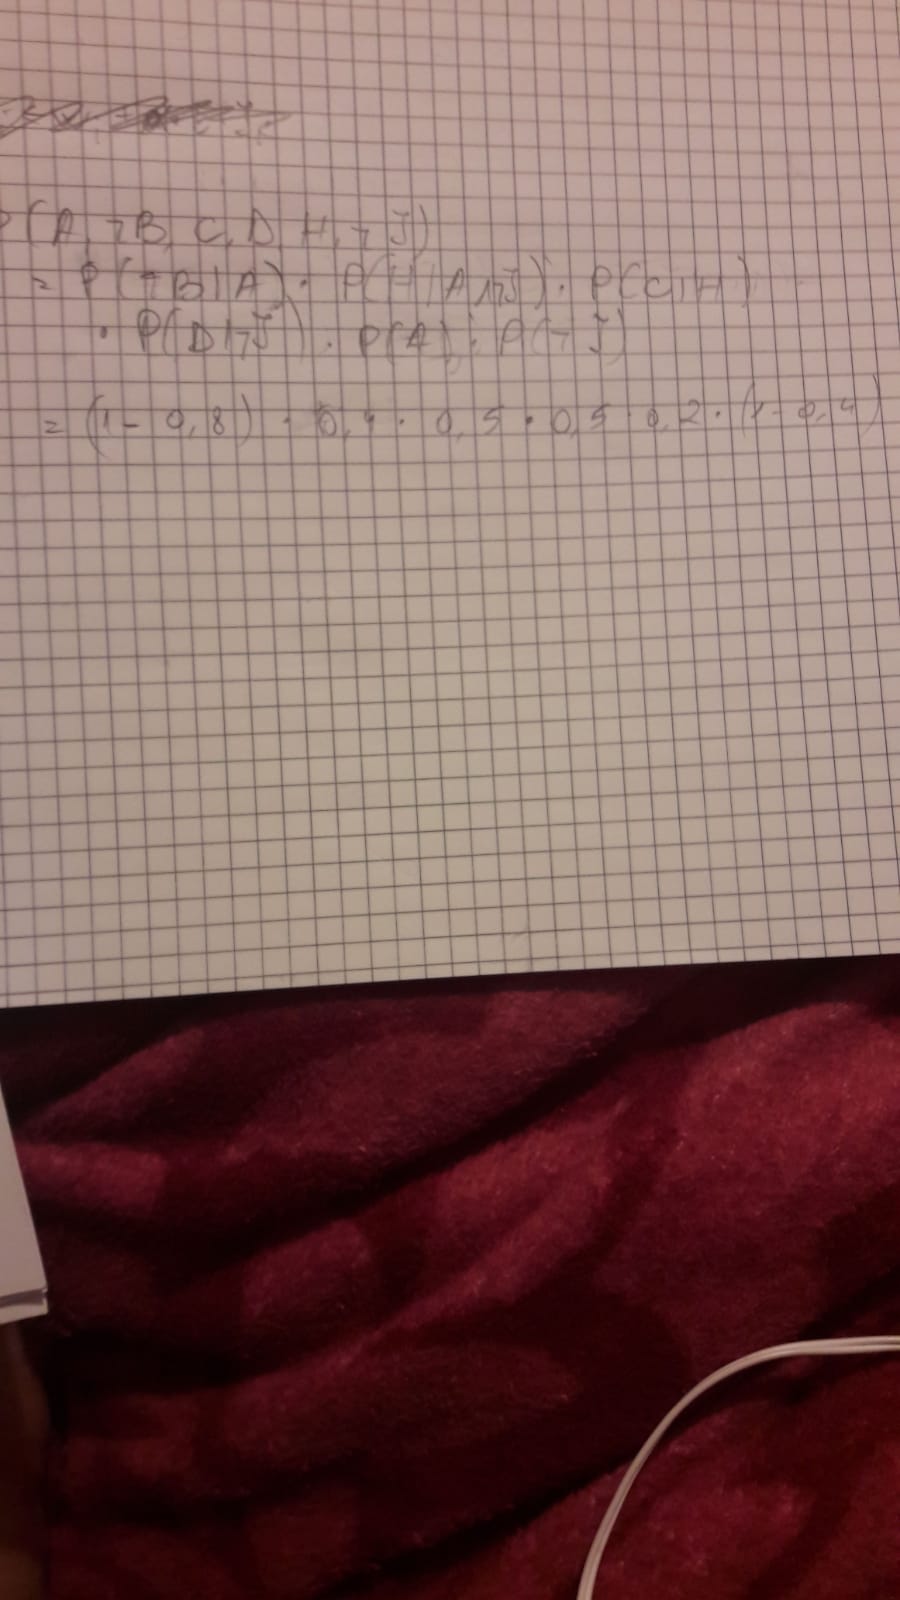 P(A, ¬B, C, D, H, ¬J)
= P(¬B|A) · P(H|A∧¬J) · P(C|H)
· P(D|¬J) · P(A) · P(¬J)
= (1 - 0,8) · 0,4 · 0,5 · 0,5 · 0,2 · (1 - 0,4)